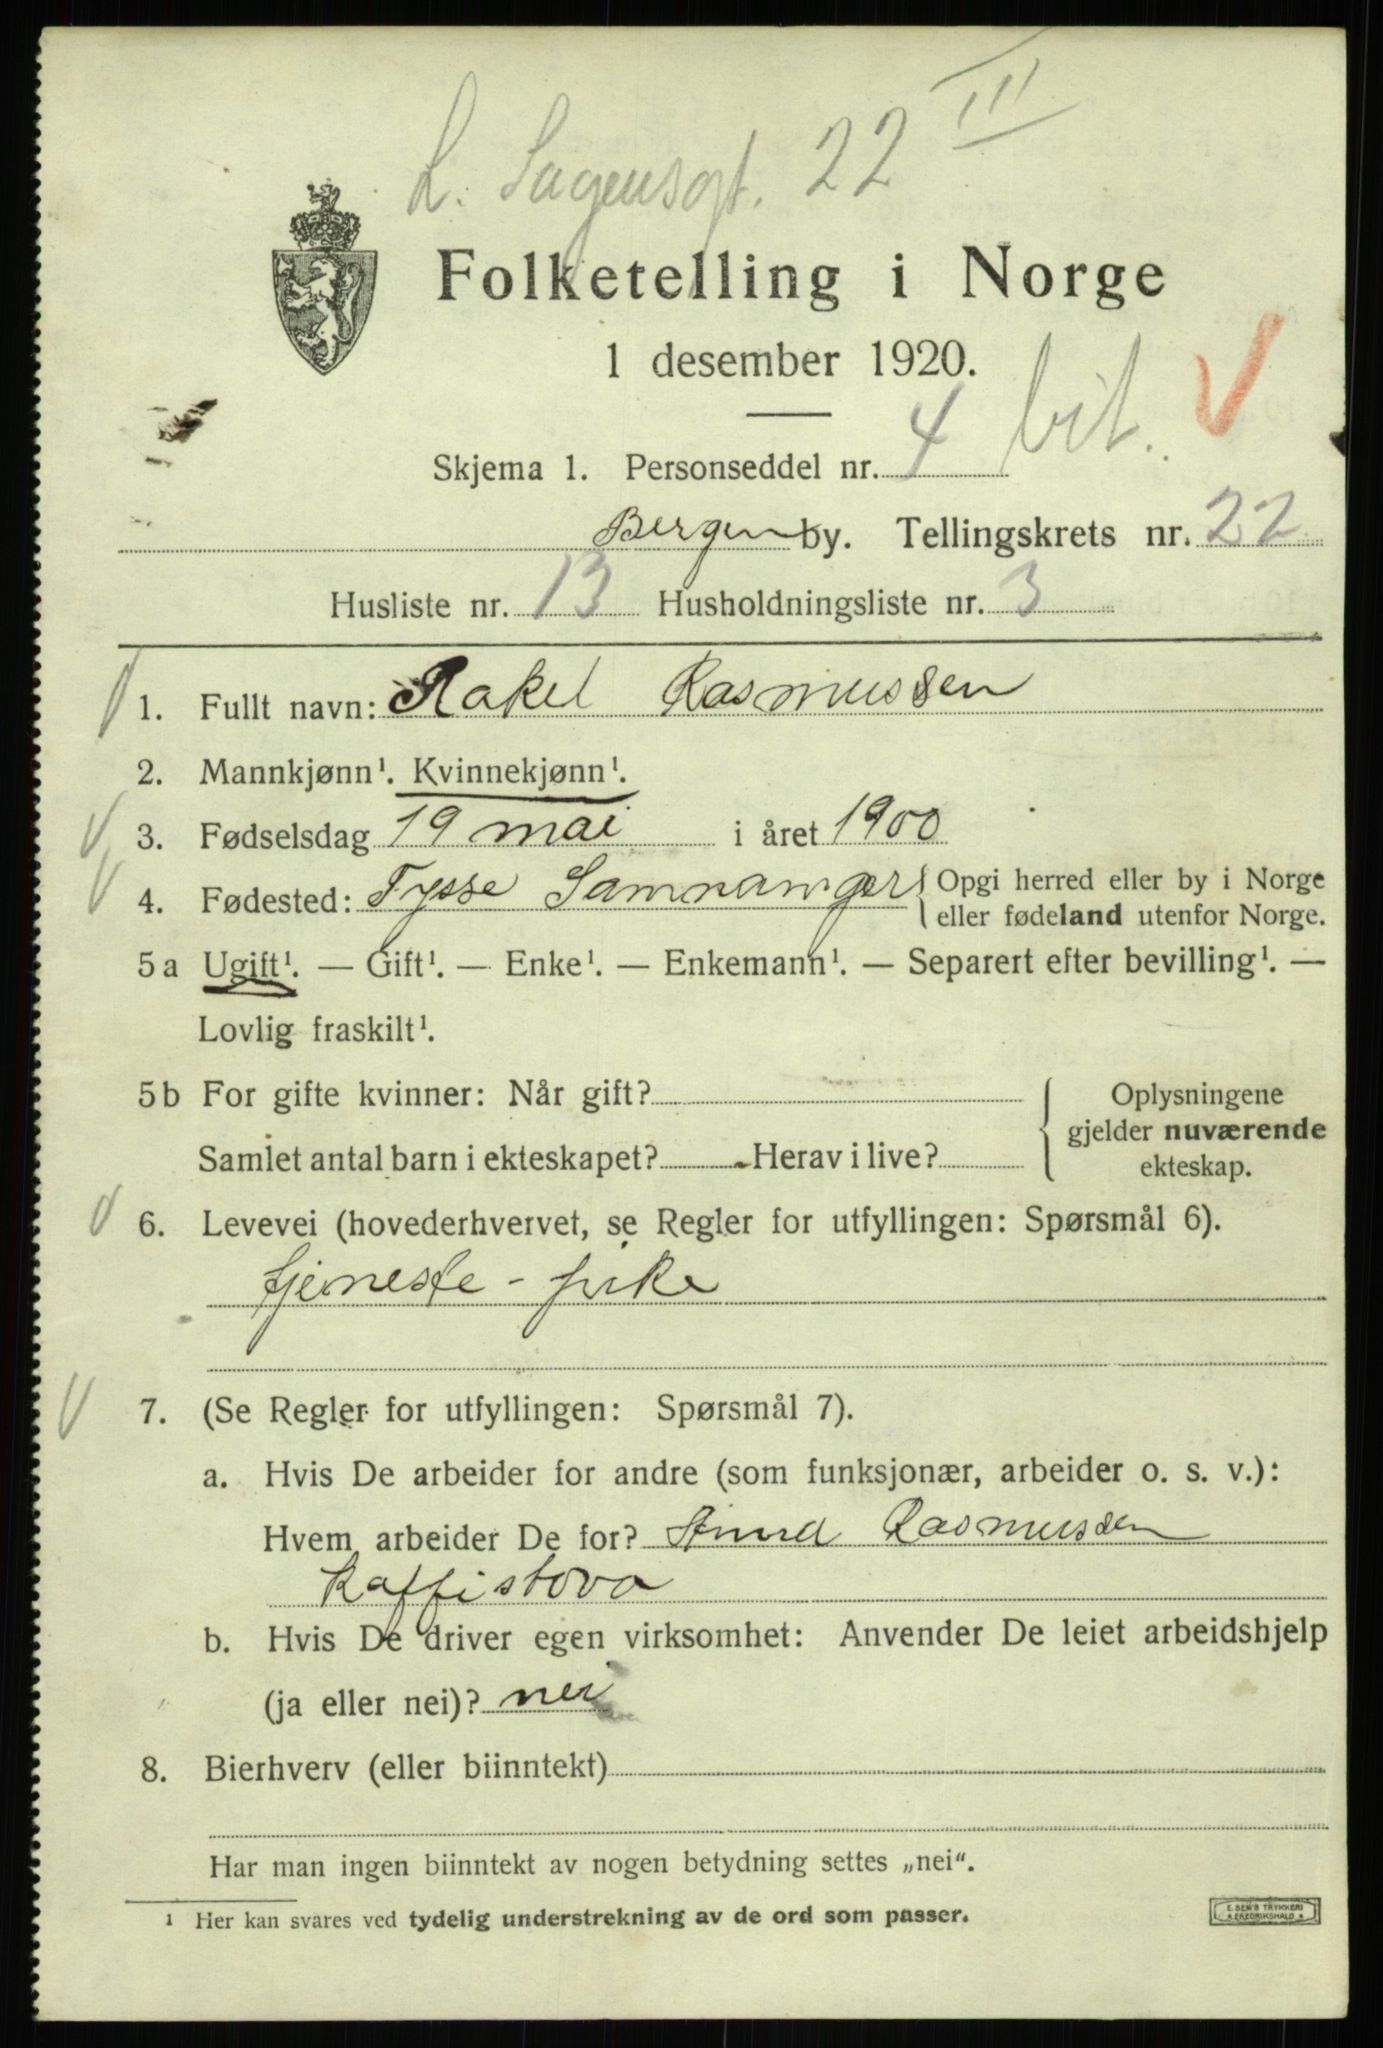 L. Sagensgt. 22 III
Folketelling i Norge
1 desember 1920.
Skjema 1. Personseddel nr. 4 bit.
Bergen by. Tellingskrets nr. 22
Husliste nr. 13 Husholdningsliste nr. 3
1. Fullt navn: Rakel Rasmussen
2. Mannkjønn¹. Kvinnekjønn¹.
3. Fødselsdag 19 mai i året 1900
4. Fødested: Tysse Samnanger { Opgi herred eller by i Norge
eller fødeland utenfor Norge.
5a Ugift¹. — Gift¹. — Enke¹. — Enkemann¹. — Separert efter bevilling¹. —
Lovlig fraskilt¹.
5b For gifte kvinner: Når gift?
Samlet antal barn i ekteskapet? Herav i live?
Oplysningene
gjelder nuværende
ekteskap.
6. Levevei (hovederhvervet, se Regler for utfyllingen: Spørsmål 6).
tjeneste - pike
7. (Se Regler for utfyllingen: Spørsmål 7).
a. Hvis De arbeider for andre (som funksjonær, arbeider o. s. v.):
Hvem arbeider De for? Rasmussen
Kaffistova
b. Hvis De driver egen virksomhet: Anvender De leiet arbeidshjelp
(ja eller nei)? nei
8. Bierhverv (eller biinntekt)
Har man ingen biinntekt av nogen betydning settes „nei".
¹ Her kan svares ved tydelig understrekning av de ord som passer.
E. SEM'S TRYKKERI
FREDRIKSHALD